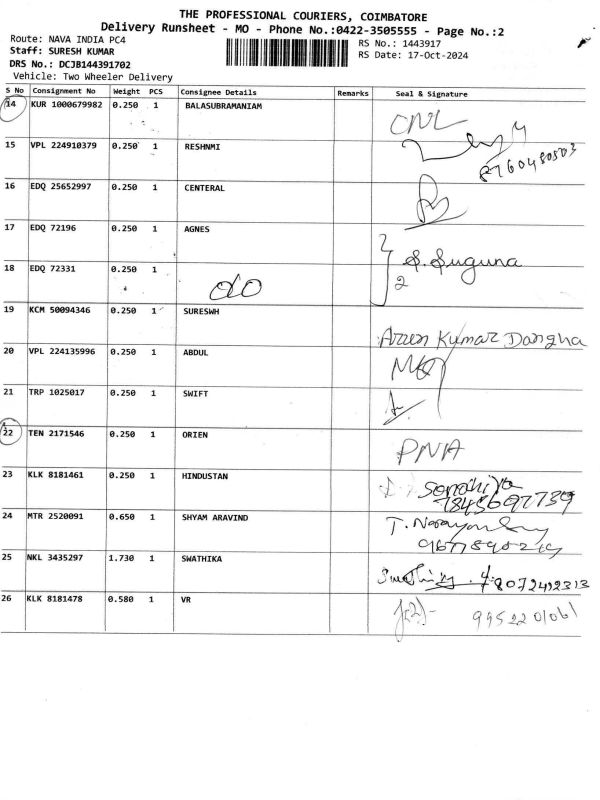 THE PROFESSIONAL COURIERS, COIMBATORE
Delivery Runsheet - MO - Phone No.:0422-3505555 - Page No.:2
Route: NAVA INDIA PC4
Staff: SURESH KUMAR
DRS No.: DCJB144391702
Vehicle: Two Wheeler Delivery
RS No.: 1443917
RS Date: 17-Oct-2024
S No Consignment No Weight PCS Consignee Details Remarks Seal & Signature
14 KUR 1000679982 0.250 1 BALASUBRAMANIAM CNL
15 VPL 224910379 0.250 1 RESHNMI
16 EDQ 25652997 0.250 1 CENTERAL
17 EDQ 72196 0.250 1 AGNES S. Suguna
18 EDQ 72331 0.250 1 do 2
19 KCM 50094346 0.250 1 SURESWH Arun Kumar Dangha
20 VPL 224135996 0.250 1 ABDUL
21 TRP 1025017 0.250 1 SWIFT
22 TEN 2171546 0.250 1 ORIEN PNA
23 KLK 8181461 0.250 1 HINDUSTAN Sandhiya
24 MTR 2520091 0.650 1 SHYAM ARAVIND
25 NKL 3435297 1.730 1 SWATHIKA 8072492313
26 KLK 8181478 0.580 1 VR 9952201061